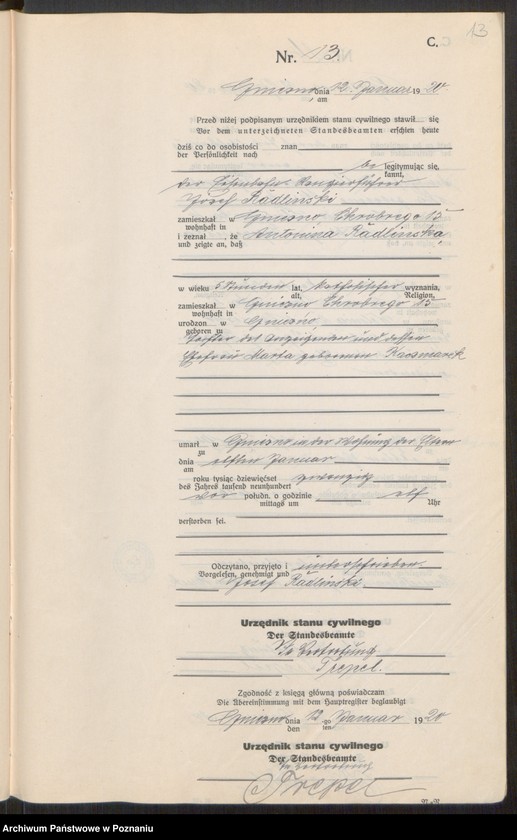 13
C.
Nr. 13.
Gniezno dnia 12. Januar 1920
am
Przed niżej podpisanym urzędnikiem stanu cywilnego stawił się
Vor dem unterzeichneten Standesbeamten erschien heute
dziś co do osobistości znan
der Persönlichkeit nach
be legitymując się,
kannt,
der Eisenbahn Rangierführer
Josef Radlinski
zamieszkał w Gniezno Chrobrego 15
wohnhaft in
i zeznał , że Antonina Radlinska,
und zeigte an, daß
w wieku 5 Stunden lat, katholischer wyznania,
alt, Religion,
zamieszkał w Gniezno Chrobrego 15
wohnhaft in
urodzon w Gniezno,
geboren zu
Tochter des Anzeigenden und dessen
Ehefrau Marta geborenen Kaczmarek
umarł w Gniezno in der Wohnung der Eltern
zu
dnia elften Januar
am
roku tysiąc dziewięćset zwanzig
des Jahres tausend neunhundert
vor połudn. o godzinie elf
mittags um Uhr
verstorben sei.
Odczytano, przyjęto i unterschrieben.
Vorgelesen, genehmigt und
Josef Radlinski.
Urzędnik stanu cywilnego
Der Standesbeamte
In Vertretung
Trepel.
Zgodność z księgą główną poświadczam
Die Übereinstimmung mit dem Hauptregister beglaubigt
Gniezno dnia 12 go Januar 1920
den ten
Urzędnik stanu cywilnego
Der Standesbeamte
In Vertretung
Trepel
Archiwum Państwowe w Poznaniu